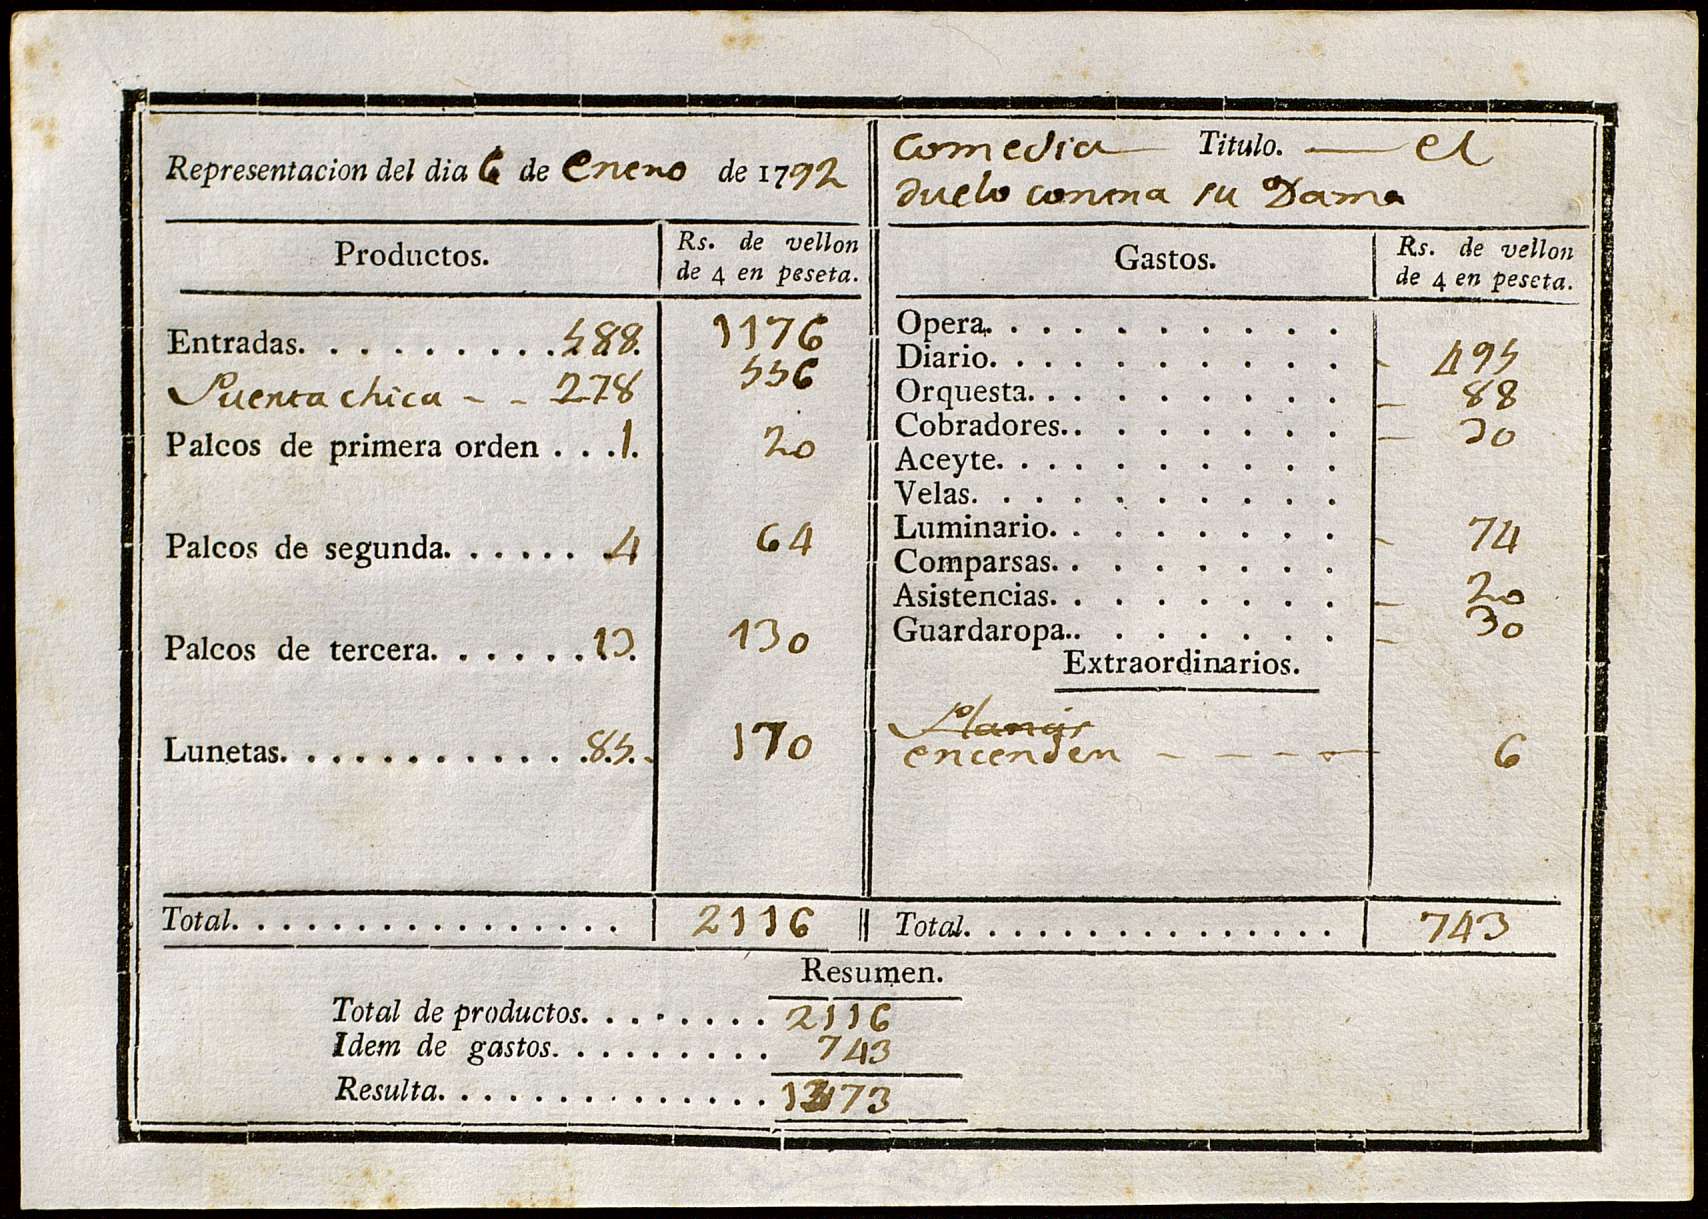 Representacion del dia 6 de Enero de 1792
Comedia — Titulo. — el
duelo contra su Dama
Productos.
Rs. de vellon
de 4 en peseta.
Entradas. . . . . . . . . . 588. 1176
Puerta chica - - 278 556
Palcos de primera orden . . . 1. 20
Palcos de segunda. . . . . . . 4 64
Palcos de tercera. . . . . . . 13. 130
Lunetas. . . . . . . . . . . . 85. 170
Total. . . . . . . . . . . . . . . . 2116
Gastos.
Rs. de vellon
de 4 en peseta.
Opera. . . . . . . . . . .
Diario. . . . . . . . . . . 495
Orquesta. . . . . . . . . . 88
Cobradores. . . . . . . . . 30
Aceyte. . . . . . . . . . .
Velas. . . . . . . . . . .
Luminario. . . . . . . . . 74
Comparsas. . . . . . . . .
Asistencias. . . . . . . . 20
Guardaropa. . . . . . . . . 30
Extraordinarios.
encender - - - - 6
Total. . . . . . . . . . . . . . . . 743
Resumen.
Total de productos. . . . . . . . 2116
Idem de gastos. . . . . . . . . 743
Resulta. . . . . . . . . . . . . . 1373